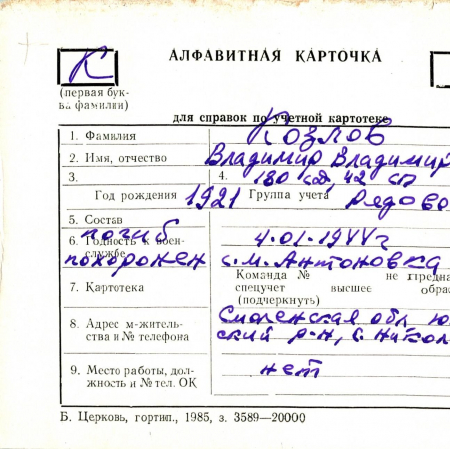 К
АЛФАВИТНАЯ КАРТОЧКА
(первая бук-
ва фамилии)
для справок по учетной картотеке
1. Фамилия Козлов
2. Имя, отчество Владимир Владимир
3. 4. 180 сд, 42 сп
Год рождения 1921 Группа учета Рядово
5. Состав
погиб
6. Годность к воен- 4.01.1944г
службе похоронен с. М. Антоновка
Команда № не предна
7. Картотека спецучет высшее обра
(подчеркнуть)
8. Адрес м-житель- Смоленская обл
ства и № телефона ский р-н, с. Никол
9. Место работы, дол- нет
жность и № тел. ОК
Б. Церковь, гортип., 1985, з. 3589—20000